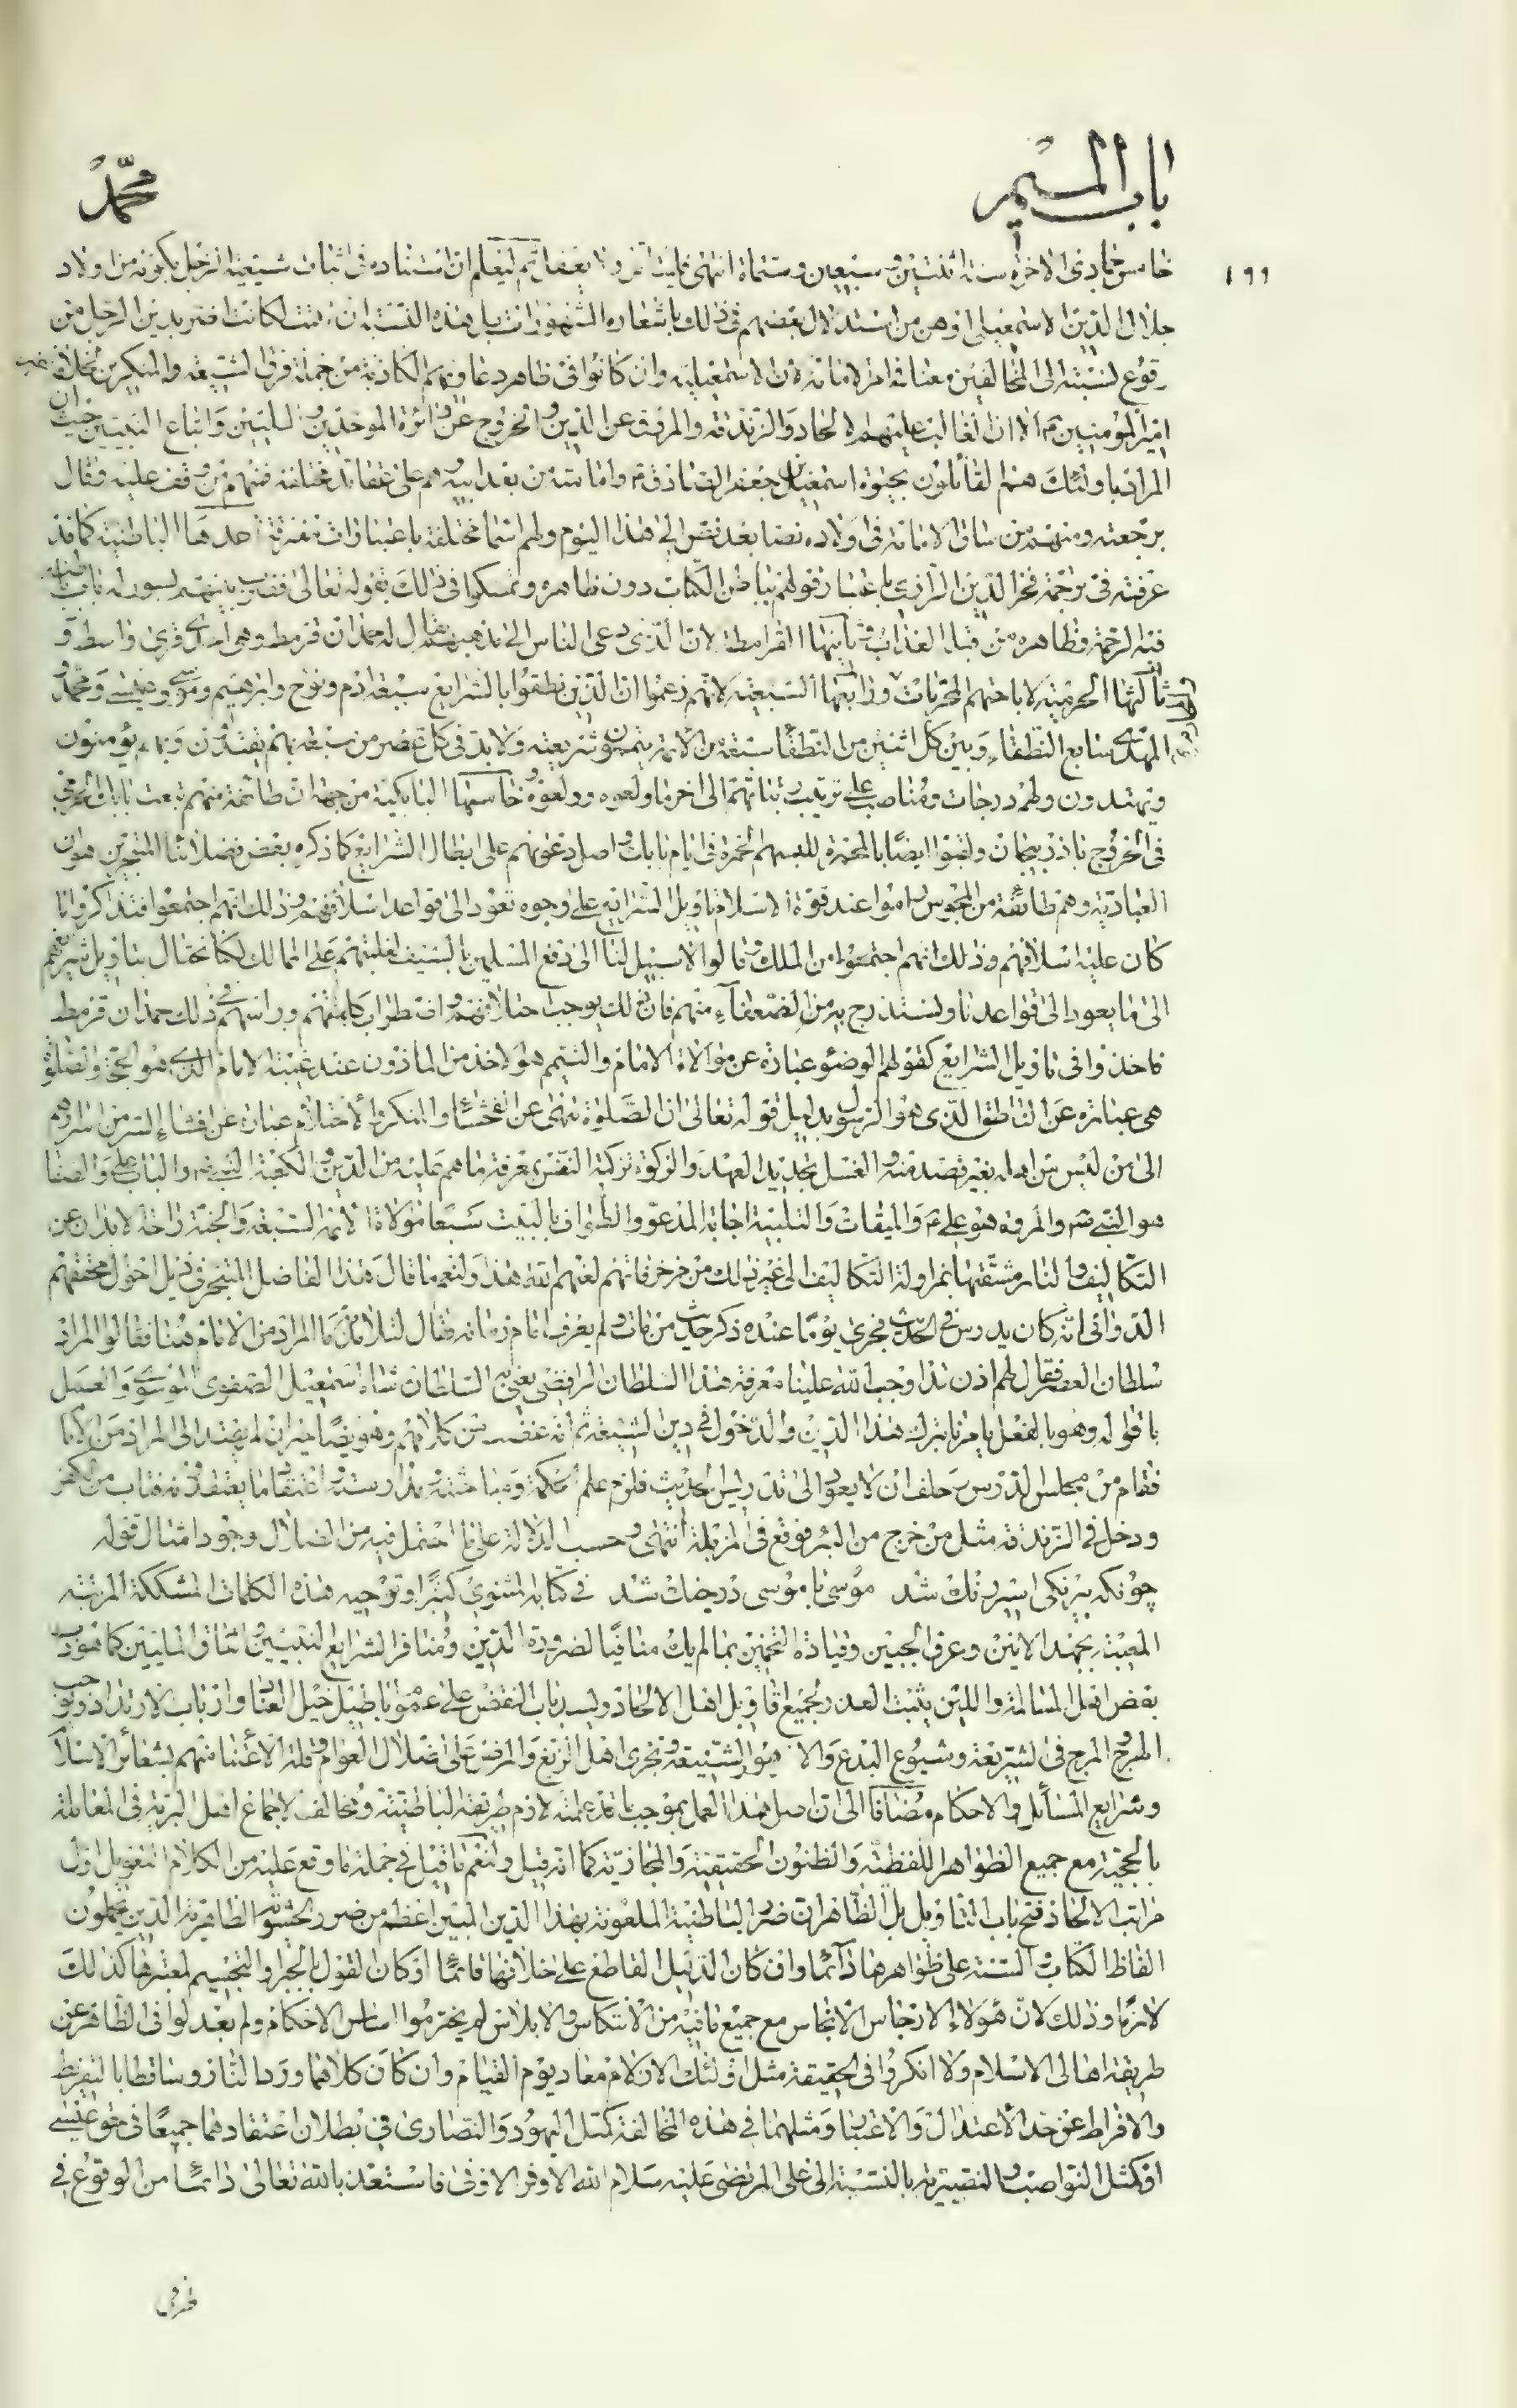 باب الميم
محمد
١٩٩
خامس جمادى الاخرة سنة اثنتين وسبعين وستمائة انتهى ثم ليعلم ان استناده فى اثبات شيعية الرجل بكونه من اولاد
جلال الدين الاسمعيلى اوهن من استدلال بعضهم فى ذلك باشعاره المشهورات بل هذه النسبة ان ثبتت لكانت اضر بدين الرجل من
وقوع نسبته الى المخالفين معنا فى امر الامامة لان الاسمعيلية وان كانوا فى ظاهر دعاويهم الكاذبة من جملة فرق الشيعة والمنكرين لخلافة غير
امير المؤمنين الا ان الغالب عليهم الالحاد والزندقة والمروق عن الدين والخروج عن دائرة الموحدين والمليين واتباع النبيين حيث ان
المراد باولئك هم القائلون بحيوة اسمعيل بن جعفر الصادق وامامته من بعد ابيه وهم على عقائد مختلفة فمنهم من وقف عليه وقال
برجعته ومنهم من ساق الامامة فى اولاده نصا بعد نص الى هذا اليوم ولهم اسماء مختلفة باعتبارات متفرقة احدها الباطنية كما قد
عرفته فى ترجمة فخر الدين الرازى باعتبار قولهم بباطن الكتاب دون ظاهره وتمسكوا فى ذلك بقوله تعالى فضرب بينهم بسور له باب باطنه
فيه الرحمة وظاهره من قبله العذاب وثانيها القرامطة لان الذى دعى الناس الى مذهبهم يقال له حمدان قرمط وهى احدى قرى واسط و
ثالثها الحرمية لاباحتهم المحرمات ورابعها السبعية لانهم زعموا ان الذين نطقوا بالشرايع سبعة ادم ونوح وابرهيم وموسى وعيسى ومحمد و
المهدى سابع النطقاء وبين كل اثنين من النطقاء سبعة من الائمة يتممون شريعته ولا بد فى كل عصر من سبعة بهم يقتدون وبهم يؤمنون
ويهتدون ولهم درجات ومناصب على ترتيب رتبتهم الى اخر ما ولعوه وولعوه وخامسها البابكية من جهة ان طائفة منهم تبعت بابك الخرمى
فى الخروج باذربيجان ولقبوا ايضا بالمحمرة للبسهم الحمرة فى ايام بابك واصل دعوتهم على ابطال الشرايع كما ذكره بعض فضلائنا المتبحرين هو ان
العبادية وهم طائفة من المجوس راموا عند قوة الاسلام تاويل الشرايع على وجوه تعود الى قواعد اسلافهم وذلك انهم اجتمعوا فتذاكروا ما
كان عليه اسلافهم وذلك انهم اجتمعوا من الملك وقالوا لا سبيل لنا الى دفع المسلمين بالسيف لغلبتهم على الممالك لكنا نحتال بتاويل شرايعهم
الى ما يعود الى قواعدنا ونستدرج به من الضعفاء منهم فان ذلك يوجب اختلافهم واضطراب كلمتهم وراسهم فى ذلك حمدان قرمط
فاخذوا فى تاويل الشرايع كقولهم الوضوء عبارة عن موالاة الامام والتيمم هو الاخذ من الماذون عند غيبة الامام الذى هو الحجة والصلوة
هى عبارة عن الناطق الذى هو الرسول بدليل قوله تعالى ان الصلوة تنهى عن الفحشاء والمنكر والاحتلام عبارة عن افشاء السر من اسرارهم
الى من ليس من اهله بغير قصد منه والغسل تجديد العهد والزكوة تزكية النفس بمعرفة ما هم عليه من الدين والكعبة النبى والباب على والصفا
هو النبى والمروة هو على والميقات والتلبية اجابة المدعو والطواف بالبيت سبعا موالاة الائمة السبعة والجنة راحة الابدان عن
التكاليف والنار مشقتها بمزاولة التكاليف الى غير ذلك من خرافاتهم لعنهم الله هذا ولنعم ما قال هذا الفاضل المتبحر فى ذيل احوال محققهم
الدوانى انه كان يدرس فى الحديث فجرى يوما عنده ذكر حديث من مات ولم يعرف امام زمانه فقال لتلامذته ما المراد من الامام هنا فقالوا المراد
سلطان العصر فقال لهم اذن قد اوجب الله علينا معرفة هذا السلطان الرافضى يعنى به السلطان شاه اسمعيل الصفوى الموسوى والعمل
باقواله وهو بالفعل يامرنا بترك هذا الدين والدخول فى دين الشيعة ثم انه غضب من كلامهم وهو ايضا حيران لم يهتد الى المراد من الامام
فقام من مجلس الدرس وحلف ان لا يعود الى تدريس الحديث فلزم علم الحكمة ومباحثته ومدارسته واعتقد ما يعتقدونه فتاب من الكفر
ودخل فى الزندقة مثل من خرج من البئر فوقع فى المزبلة انتهى وحسب الدلالة على ما احتمل فيه من الضلال وجود امثال قوله
چونكه بيرنكى اسير رنك شد موسى با موسى در جنك شد فى كتابه المثنوى كثيرا وتوجيه هذه الكلمات المشككة المريبة
المعيبة بجهد الانين وعرق الجبين وقيادة التخمين بما لم يك منافيا لضرورة الدين ومنافرا لشرايع النبيين واتفاق المليين كما هو داب
بعض اهل المسالمة واللين يثبت العذر لجميع اقاويل اهل الالحاد ويسد باب النقض على عموم اباطيل خيل العناد وارباب الارتداد ويوجب
الهرج والمرج فى الشريعة وشيوع البدع والاهواء الشنيعة وتجرى اهل الزيغ والمرض على اضلال العوام وقلة الاعتناء منهم بشعائر الاسلام
وشرايع المسائل والاحكام مضافا الى ان اصل هذا العمل بموجب ما قد علمته لازم طريقة الباطنية ومخالف لاجماع اهل البرية فى المعاملة
بالحجية مع جميع الظواهر اللفظية والظنون الحقيقية والمجازية كما انه قيل ولنعم ما قيل فى جملة ما وقع عليه من الكلام التعويل اول
مراتب الالحاد فتح باب التاويل بل الظاهر ان ضرر الباطنية الملعونة بهذا الدين المبين اعظم من ضرر الحشوية الظاهرية الذين يحملون
الفاظ الكتاب والسنة على ظواهرها دائما وان كان الدليل القاطع على خلافها قائما او كان القول بالجبر والتجسيم لمعتبرها كذلك
لازما وذلك لان هؤلاء الارجاس الانجاس مع جميع ما فيه من الانتكاس والابلاس لم يخترموا اساس الاحكام ولم يعدلوا فى الظاهر عن
طريقة اهالى الاسلام ولا انكروا فى الحقيقة مثل اولئك الازلام معاد يوم القيام وان كان كلاهما وردا النار وساقطا بالتفريط
والافراط عن حد الاعتدال والاعتبار ومثلهما فى هذه المخالفة كمثل اليهود والنصارى فى بطلان اعتقادهما جميعا فى حق عيسى
او كمثل النواصب والنصيرية بالنسبة الى على المرتضى عليه سلام الله الاوفر الاوفى فاستعذ بالله تعالى دائما من الوقوع فى